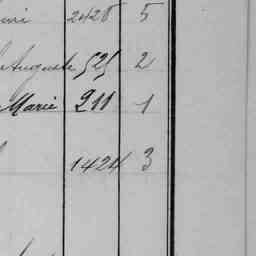 2428 5
Auguste 525 2
Marie 211 1
1424 3